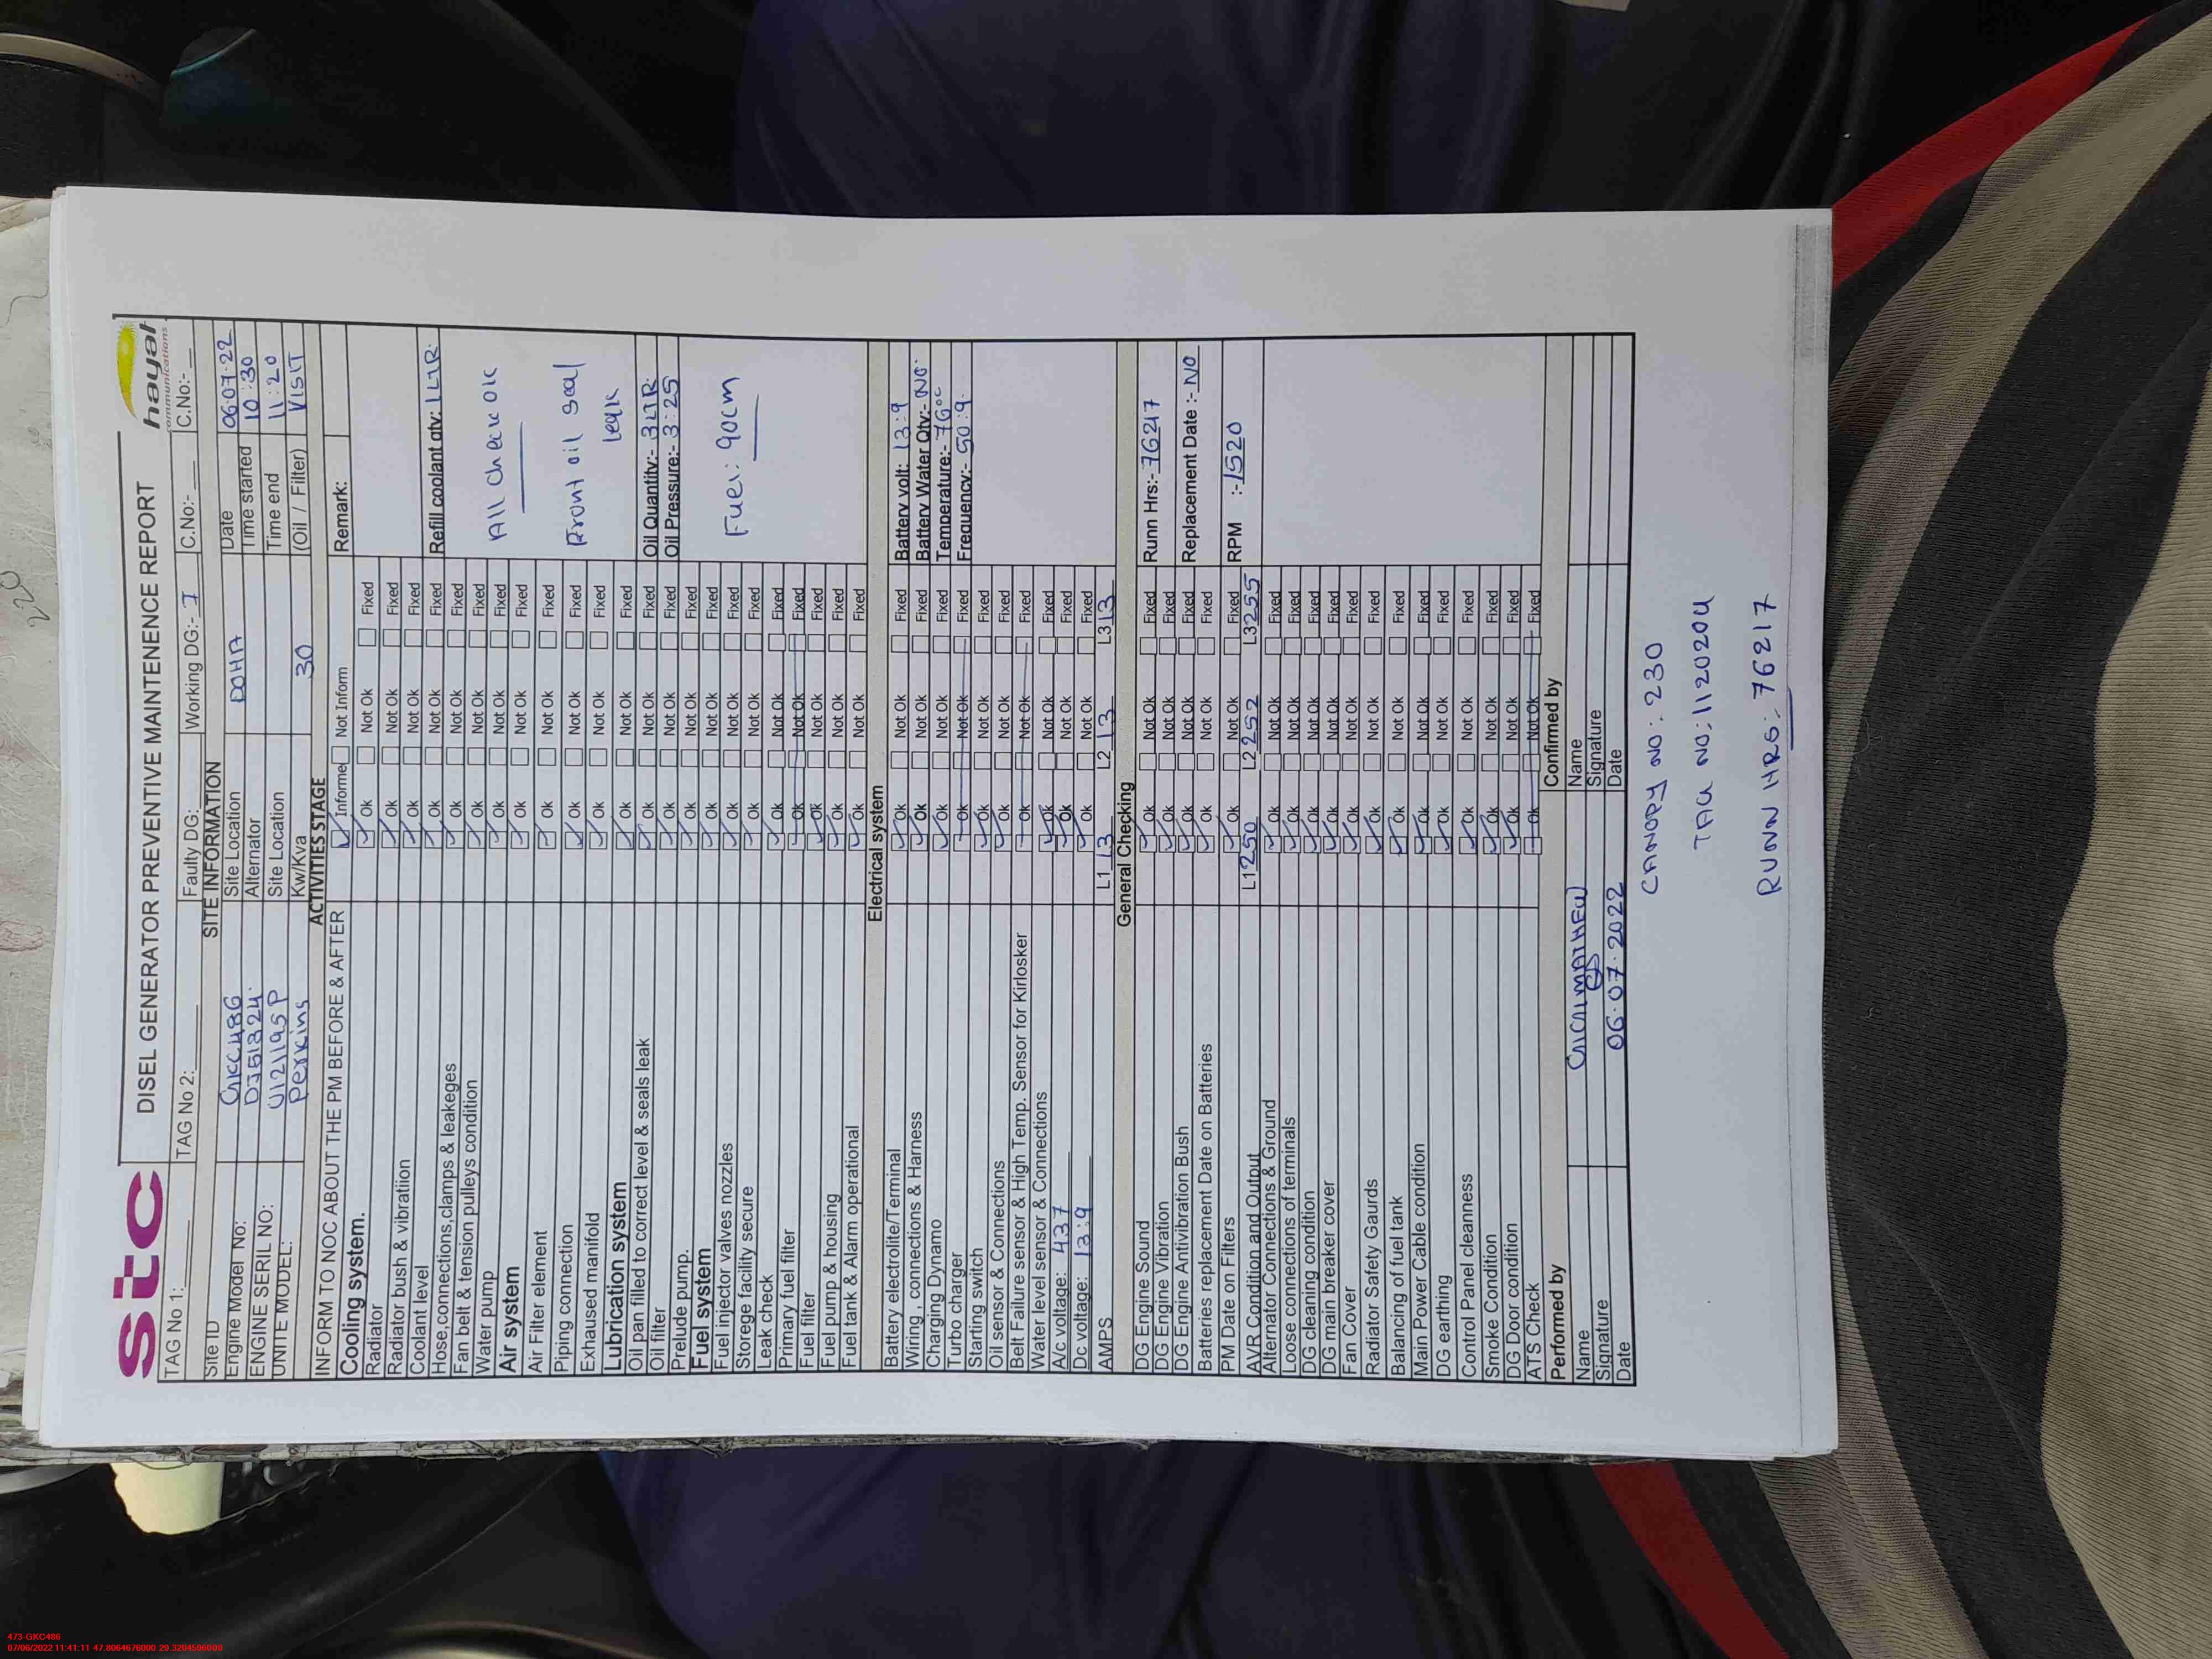 220
stc
DISEL GENERATOR PREVENTIVE MAINTENENCE REPORT
hayat
communications
TAG No 1:____ TAG No 2:____ Faulty DG:____ Working DG:- 1 C.No:- __ C.No:- __
SITE INFORMATION
Site ID GKC486 Site Location DOHA Date 06.07.22
Engine Model No: DJ51324. Alternator Time started 10:30
ENGINE SERIL NO: U121195P Site Location Time end 11:20
UNITE MODEL: Perkins Kw/Kva 30 (Oil / Filter) VISIT
ACTIVITIES STAGE
INFORM TO NOC ABOUT THE PM BEFORE & AFTER Informe Not Inform Remark:
Cooling system. Ok Not Ok Fixed
Radiator Ok Not Ok Fixed
Radiator bush & vibratiion Ok Not Ok Fixed
Coolant level Ok Not Ok Fixed Refill coolant qty: 1 LTR.
Hose,connections,clamps & leakeges Ok Not Ok Fixed
Fan belt & tension pulleys condition Ok Not Ok Fixed
Water pump Ok Not Ok Fixed All check OK
Air system Ok Not Ok Fixed
Air Filter element Ok Not Ok Fixed
Piping connection Ok Not Ok Fixed Front oil seal
Exhaused manifold Ok Not Ok Fixed leak
Lubrication system Ok Not Ok Fixed
Oil pan filled to correct level & seals leak Ok Not Ok Fixed Oil Quantity:- 3LTR.
Oil filter Ok Not Ok Fixed Oil Pressure:- 3:25
Prelude pump. Ok Not Ok Fixed
Fuel system Ok Not Ok Fixed
Fuel injector valves nozzles Ok Not Ok Fixed Fuel: 90cm
Storege facility secure Ok Not Ok Fixed
Leak check Ok Not Ok Fixed
Primary fuel filter Ok Not Ok Fixed
Fuel filter Ok Not Ok Fixed
Fuel pump & housing Ok Not Ok Fixed
Fuel tank & Alarm operational Ok Not Ok Fixed
Electrical system
Battery electrolite/Terminal Ok Not Ok Fixed Battery volt: 13:9
Wiring , connections & Harness Ok Not Ok Fixed Battery Water Qty:- NO.
Charging Dynamo Ok Not Ok Fixed Temperature:- 76°C
Turbo charger Ok Not Ok Fixed Frequency:- 50:9.
Starting switch Ok Not Ok Fixed
Oil sensor & Connections Ok Not Ok Fixed
Belt Failure sensor & High Temp. Sensor for Kirlosker Ok Not Ok Fixed
Water level sensor & Connections Ok Not Ok Fixed
A/c voltage: 437 Ok Not Ok Fixed
Dc voltage: 13:9 Ok Not Ok Fixed
AMPS L1 13 L2 13 L3 13
General Checking
DG Engine Sound Ok Not Ok Fixed Runn Hrs:- 76217
DG Engine Vibration Ok Not Ok Fixed
DG Engine Antivibration Bush Ok Not Ok Fixed Replacement Date :- NO
Batteries replacement Date on Batteries Ok Not Ok Fixed
PM Date on Filters Ok Not Ok Fixed RPM :- 1520
AVR Condition and Output L1 250 L2 252 L3 255
Alternator Connections & Ground Ok Not Ok Fixed
Loose connections of terminals Ok Not Ok Fixed
DG cleaning condition Ok Not Ok Fixed
DG main breaker cover Ok Not Ok Fixed
Fan Cover Ok Not Ok Fixed
Radiator Safety Gaurds Ok Not Ok Fixed
Balancing of fuel tank Ok Not Ok Fixed
Main Power Cable condition Ok Not Ok Fixed
DG earthing Ok Not Ok Fixed
Control Panel cleanness Ok Not Ok Fixed
Smoke Condition Ok Not Ok Fixed
DG Door condition Ok Not Ok Fixed
ATS Check Ok Not Ok Fixed
Performed by Confirmed by
Name Name
Signature Signature
Date 06.07.2022 Date
CANOPY NO: 230
TAG NO: 1120204
RUNN HRS:- 76217
473-GKC486
07/06/2022 11:41:11 47.8064676000 29.3204596000